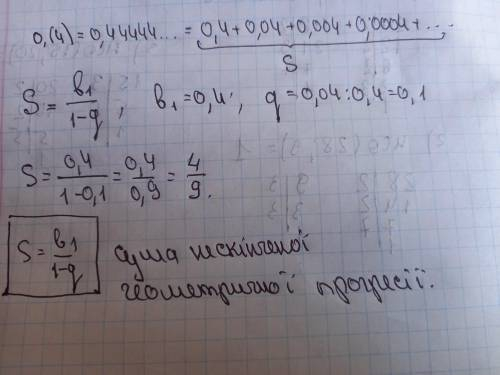 0,(4) = 0,44444... = 0,4+0,04+0,004+0,0004+...
S
S = b₁/(1-q), b₁=0,4, q=0,04:0,4=0,1
S = 0,4/(1-0,1) = 0,4/0,9 = 4/9.
S = b₁/(1-q) сума нескінченої
геометричної прогресії.